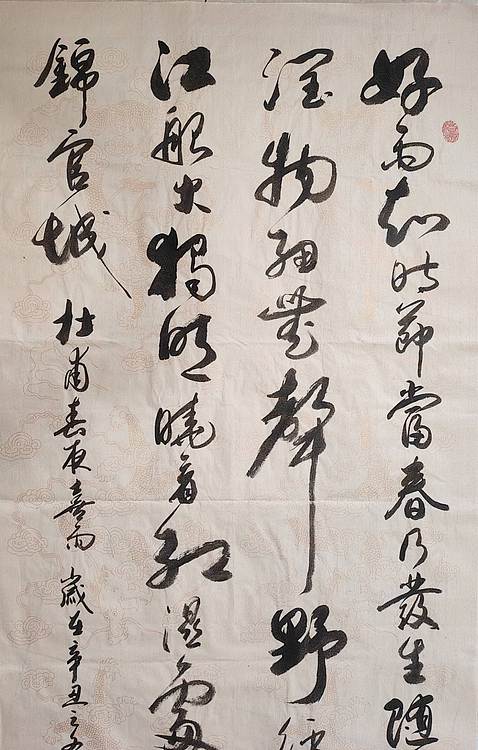 好雨知時節當春乃發生随
潤物細無聲野徑
江船火獨明曉看紅濕處
錦官城 杜甫春夜喜雨 歲在辛丑之